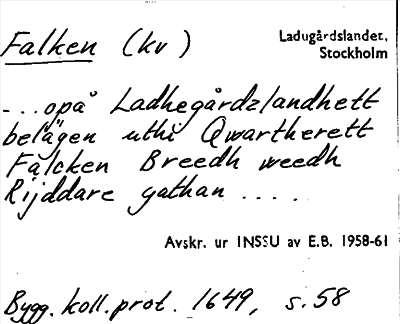 Falken (kv)
Ladugårdslandet,
Stockholm
-...opå Ladhegårdzlandhett
belägen uthi Qwartherett
Falcken Breedh weedh
Rijddare gathan .....
Avskr. ur INSSU av E.B. 1958-61
Bygg.koll.prot. 1649, s.58